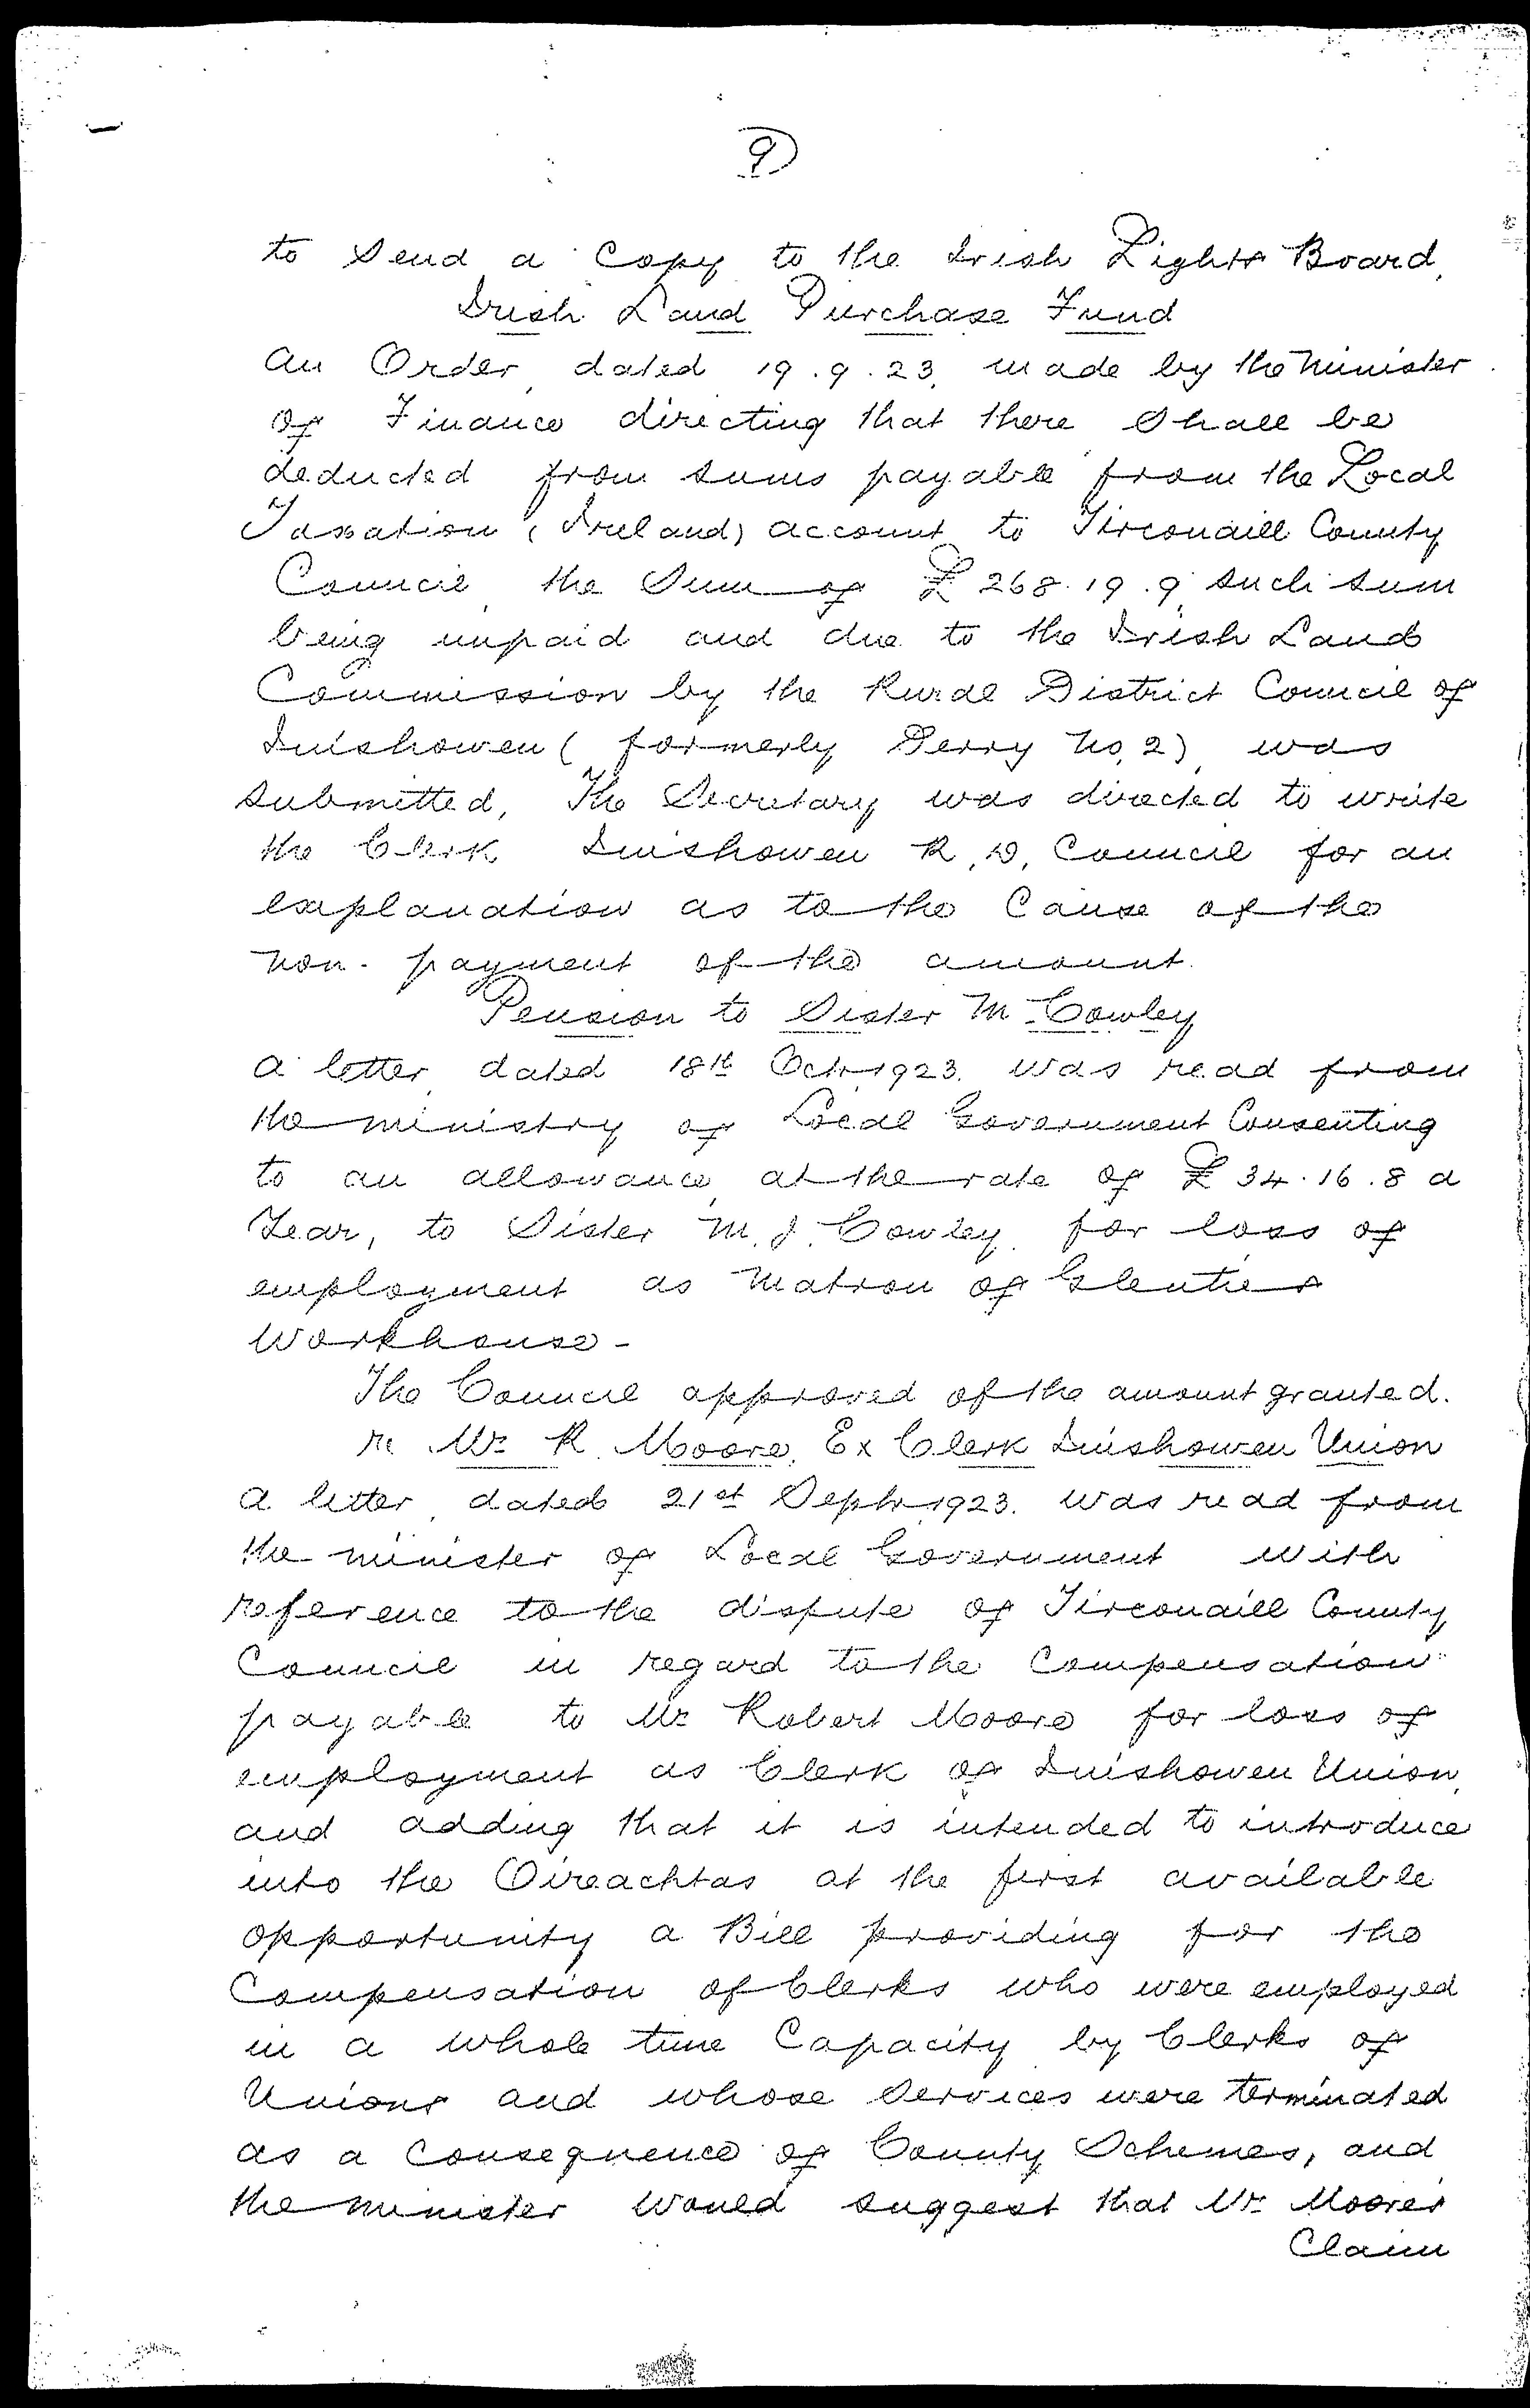 9
to Send a Copy to the Irish Lights Board,
Irish Land Purchase Fund
An Order, dated 19.9.23, made by the Minister
of Finance directing that there Shall be
deducted from sums payable from the Local
Taxation (Ireland) account to Tirconaill County
Council, the Sum of £268.19.9, such sum
being unpaid and due to the Irish Land
Commission by the Rural District Council of
Inishowen (formerly Derry No, 2), was
submitted, The Secretary was directed to write
the Clerk Inishowen R, D, Council for an
explanation as to the Cause of the
non-payment of the amount.
Pension to Sister M. Cowley
A letter, dated 18th Octr 1923, was read from
the ministry of Local Government Consenting
to an allowance, at the rate of £34.16.8 a
Year, to Sister M. J. Cowley, for loss of
employment as Matron of Glenties
Workhouse-
The Council approved of the amount granted.
re Mr R. Moore, Ex Clerk Inishowen Union
A letter, dated 21st Septr 1923. was read from
the minister of Local Government with
reference to the dispute of Tirconaill County
Council in regard to the Compensation
payable to Mr Robert Moore for loss of
employment as Clerk of Inishowen Union,
and adding that it is intended to introduce
into the Oireachtas at the first available
opportunity a Bill providing for the
Compensation of Clerks who were employed
in a whole time Capacity by Clerks of
Unions and whose Services were terminated
as a Consequence of County Schemes, and
the minister would suggest that Mr Moore's
Claim